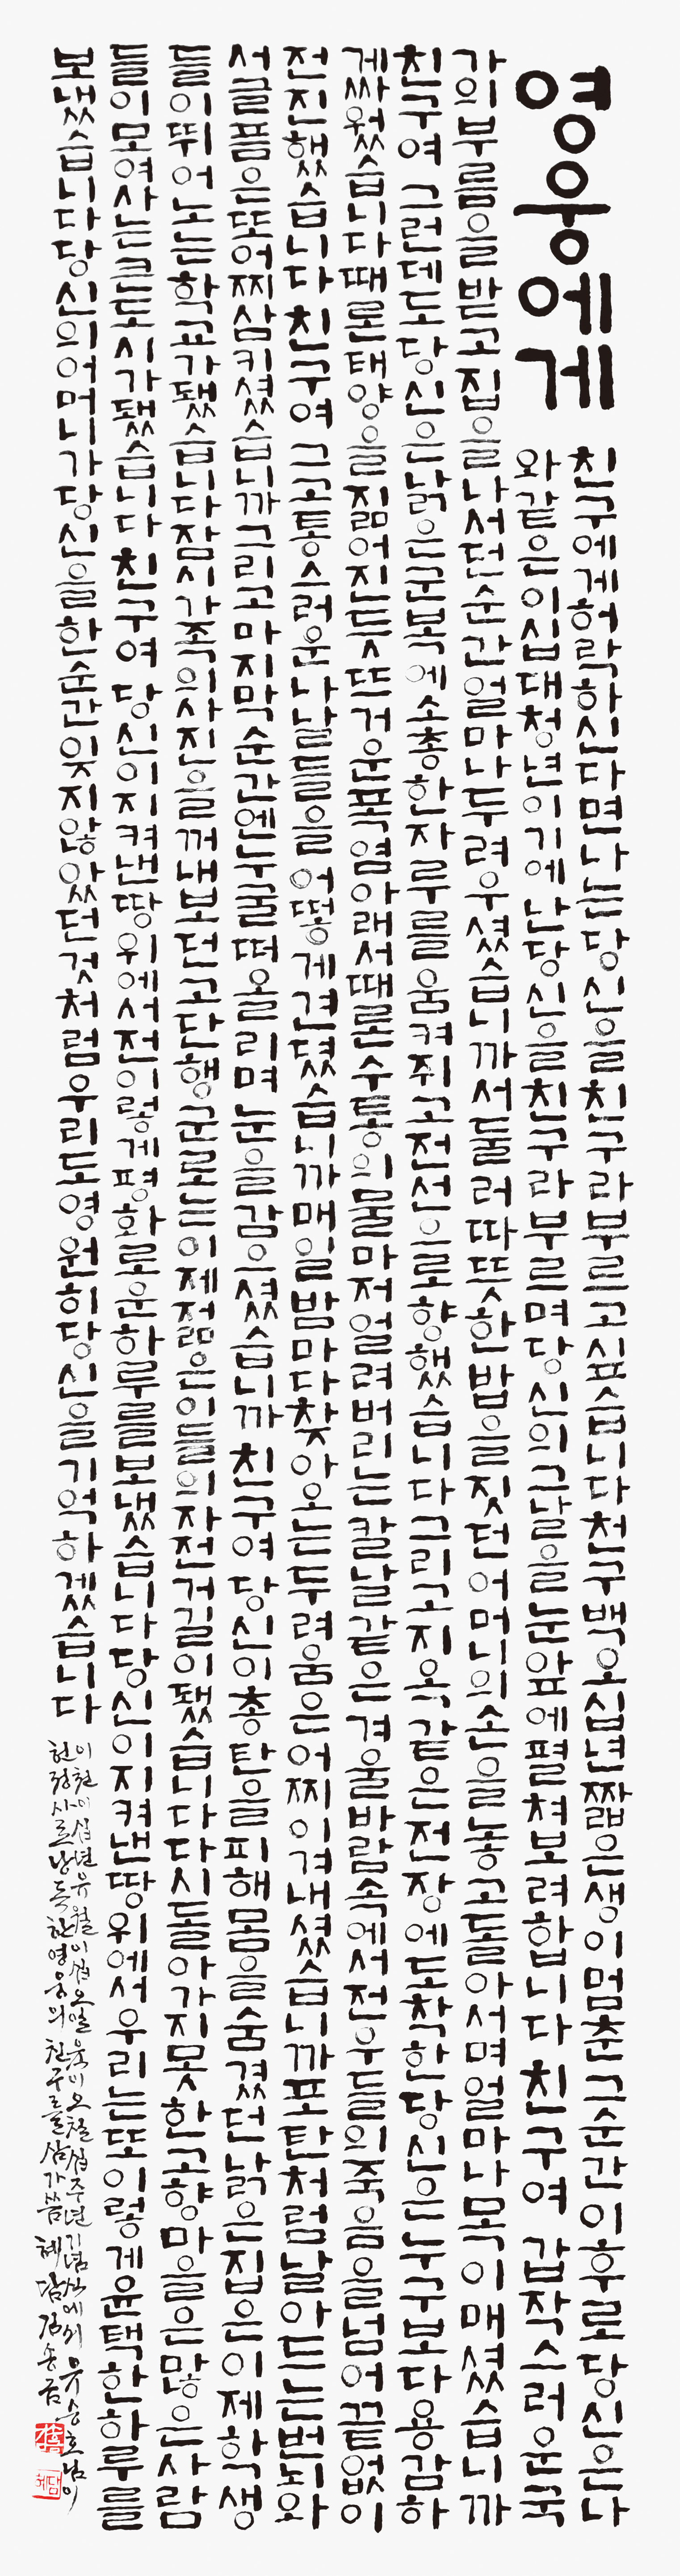 영웅에게
친구에게허락하신다면나는당신을친구라부르고싶습니다천구백오십년짧은생이멈춘그순간이후로당신은나
와같은이십대청년이기에난당신을친구라부르며당신의그날을눈앞에펼쳐보려합니다 친구여 갑작스러운국
가의부름을받고집을나서던순간얼마나두려우셨습니까서둘러따뜻한밥을짓던어머니의손을놓고돌아서며얼마나목이매셨습니까
친구여 그런데도당신은낡은군복에소총한자루를움켜쥐고전선으로향했습니다그리고지옥같은전장에도착한당신은누구보다용감하
게싸웠습니다때론태양을짊어진듯뜨거운폭염아래서때론수통의물마저얼려버리는칼날같은겨울바람속에서전우들의죽음을넘어끝없이
전진했습니다 친구여 그고통스러운나날들을어떻게견뎠습니까매일밤마다찾아오는두려움은어찌이겨내셨습니까포탄처럼날아드는번뇌와
서글픔은또어찌삼키셨습니까그리고마지막순간엔누굴떠올리며눈을감으셨습니까 친구여 당신이총탄을피해몸을숨겼던낡은집은이제학생
들이뛰어노는학교가됐습니다잠시가족의사진을꺼내보던고단행군로는이제젊은이들의자전거길이됐습니다다시돌아가지못한고향마을은많은사람
들이모여사는큰도시가됐습니다 친구여 당신이지켜낸땅위에서전이렇게평화로운하루를보냈습니다당신이지켜낸땅위에서우리는또이렇게윤택한하루를
보냈습니다당신의어머니가당신을한순간잊지않았던것처럼우리도영원히당신을기억하겠습니다
이천이십년유월이십오일육이오칠십주년기념식에서 유승호님이
헌정사로낭독한영웅의 친구를삼가씀 혜담
혜담